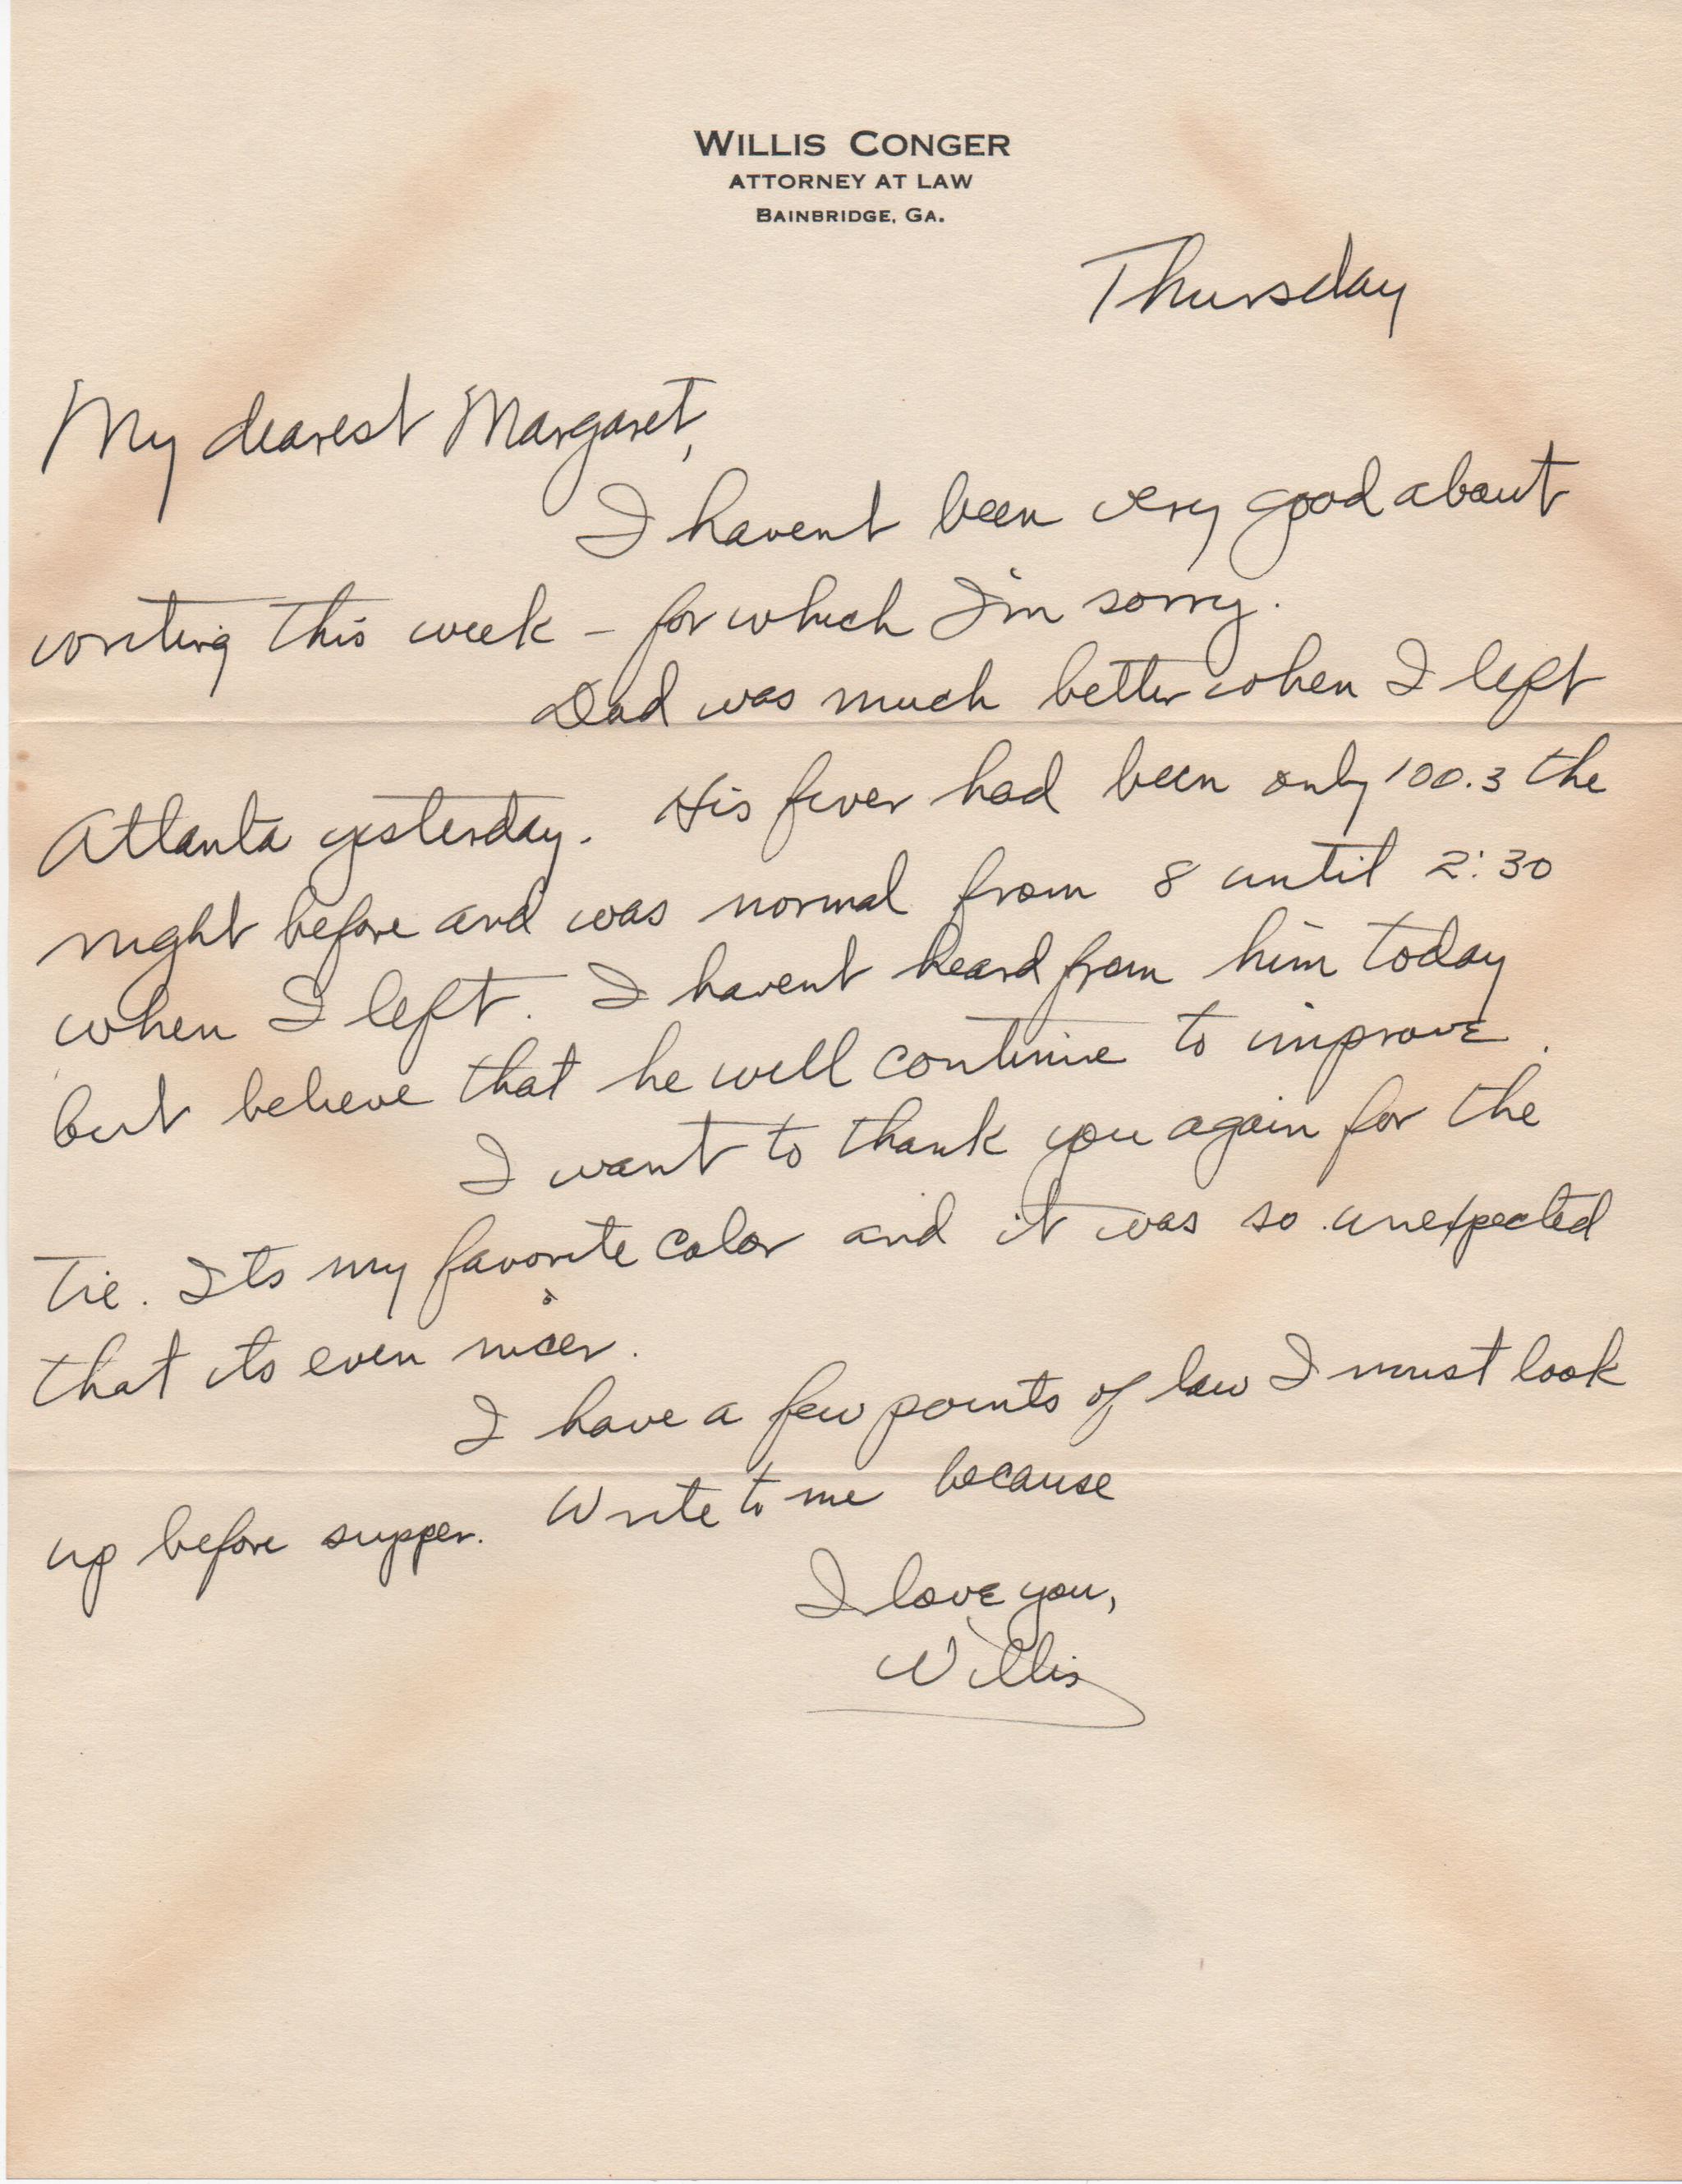 WILLIS CONGER
ATTORNEY AT LAW
BAINBRIDGE, GA.
Thursday
My dearest Margaret,
I havent been very good about
writing this week - for which I'm sorry.
Dad was much better when I left
Atlanta yesterday. His fever had been only 100.3 the
night before and was normal from 8 until 2:30
when I left. I havent heard from him today
but believe that he will continue to improve.
I want to thank you again for the
tie. Its my favorite color and it was so unexpected
that its even nicer.
I have a few points of law I must look
up before supper. Write to me because
I love you,
Willis